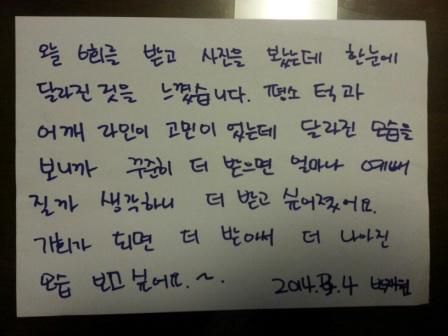 오늘 6회를 받고 사진을 봤는데 한눈에
달라진 것을 느꼈습니다. 평소 턱과
어깨 라인이 고민이 있는데 달라진 모습을
보니까 꾸준히 더 받으면 얼마나 예뻐
질까 생각하니 더 받고 싶어졌어요.
기회가 되면 더 받아서 더 나아진
모습 보고 싶어요.~.
2014. 4